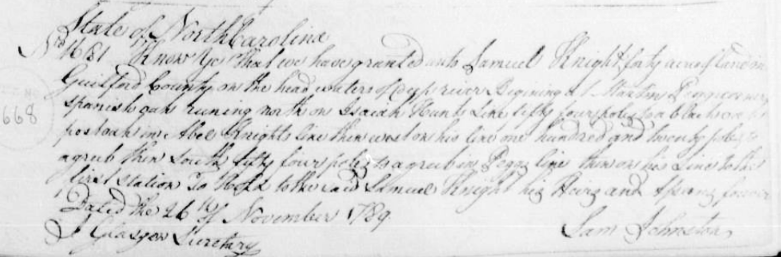 State of North Carolina
No 1681 Know Ye that we have granted unto Samuel Knight forty acres of land in
Guilford County on the head waters of deep river Begining at Martin Pegg corner
Spanish oak runing north on Isaiah Hunts Line fifty four poles to a black oak
post oak in Abel Knights line then west on his line one hundred and twenty poles to
a grub then South fifty four poles to a grub in Peggs line then on his Line to the
first station To Hold to the said Samuel Knight his Heirs and Assigns forever
Dated the 26th of November 1789
J Glasgow Secretary Sam Johnston
668